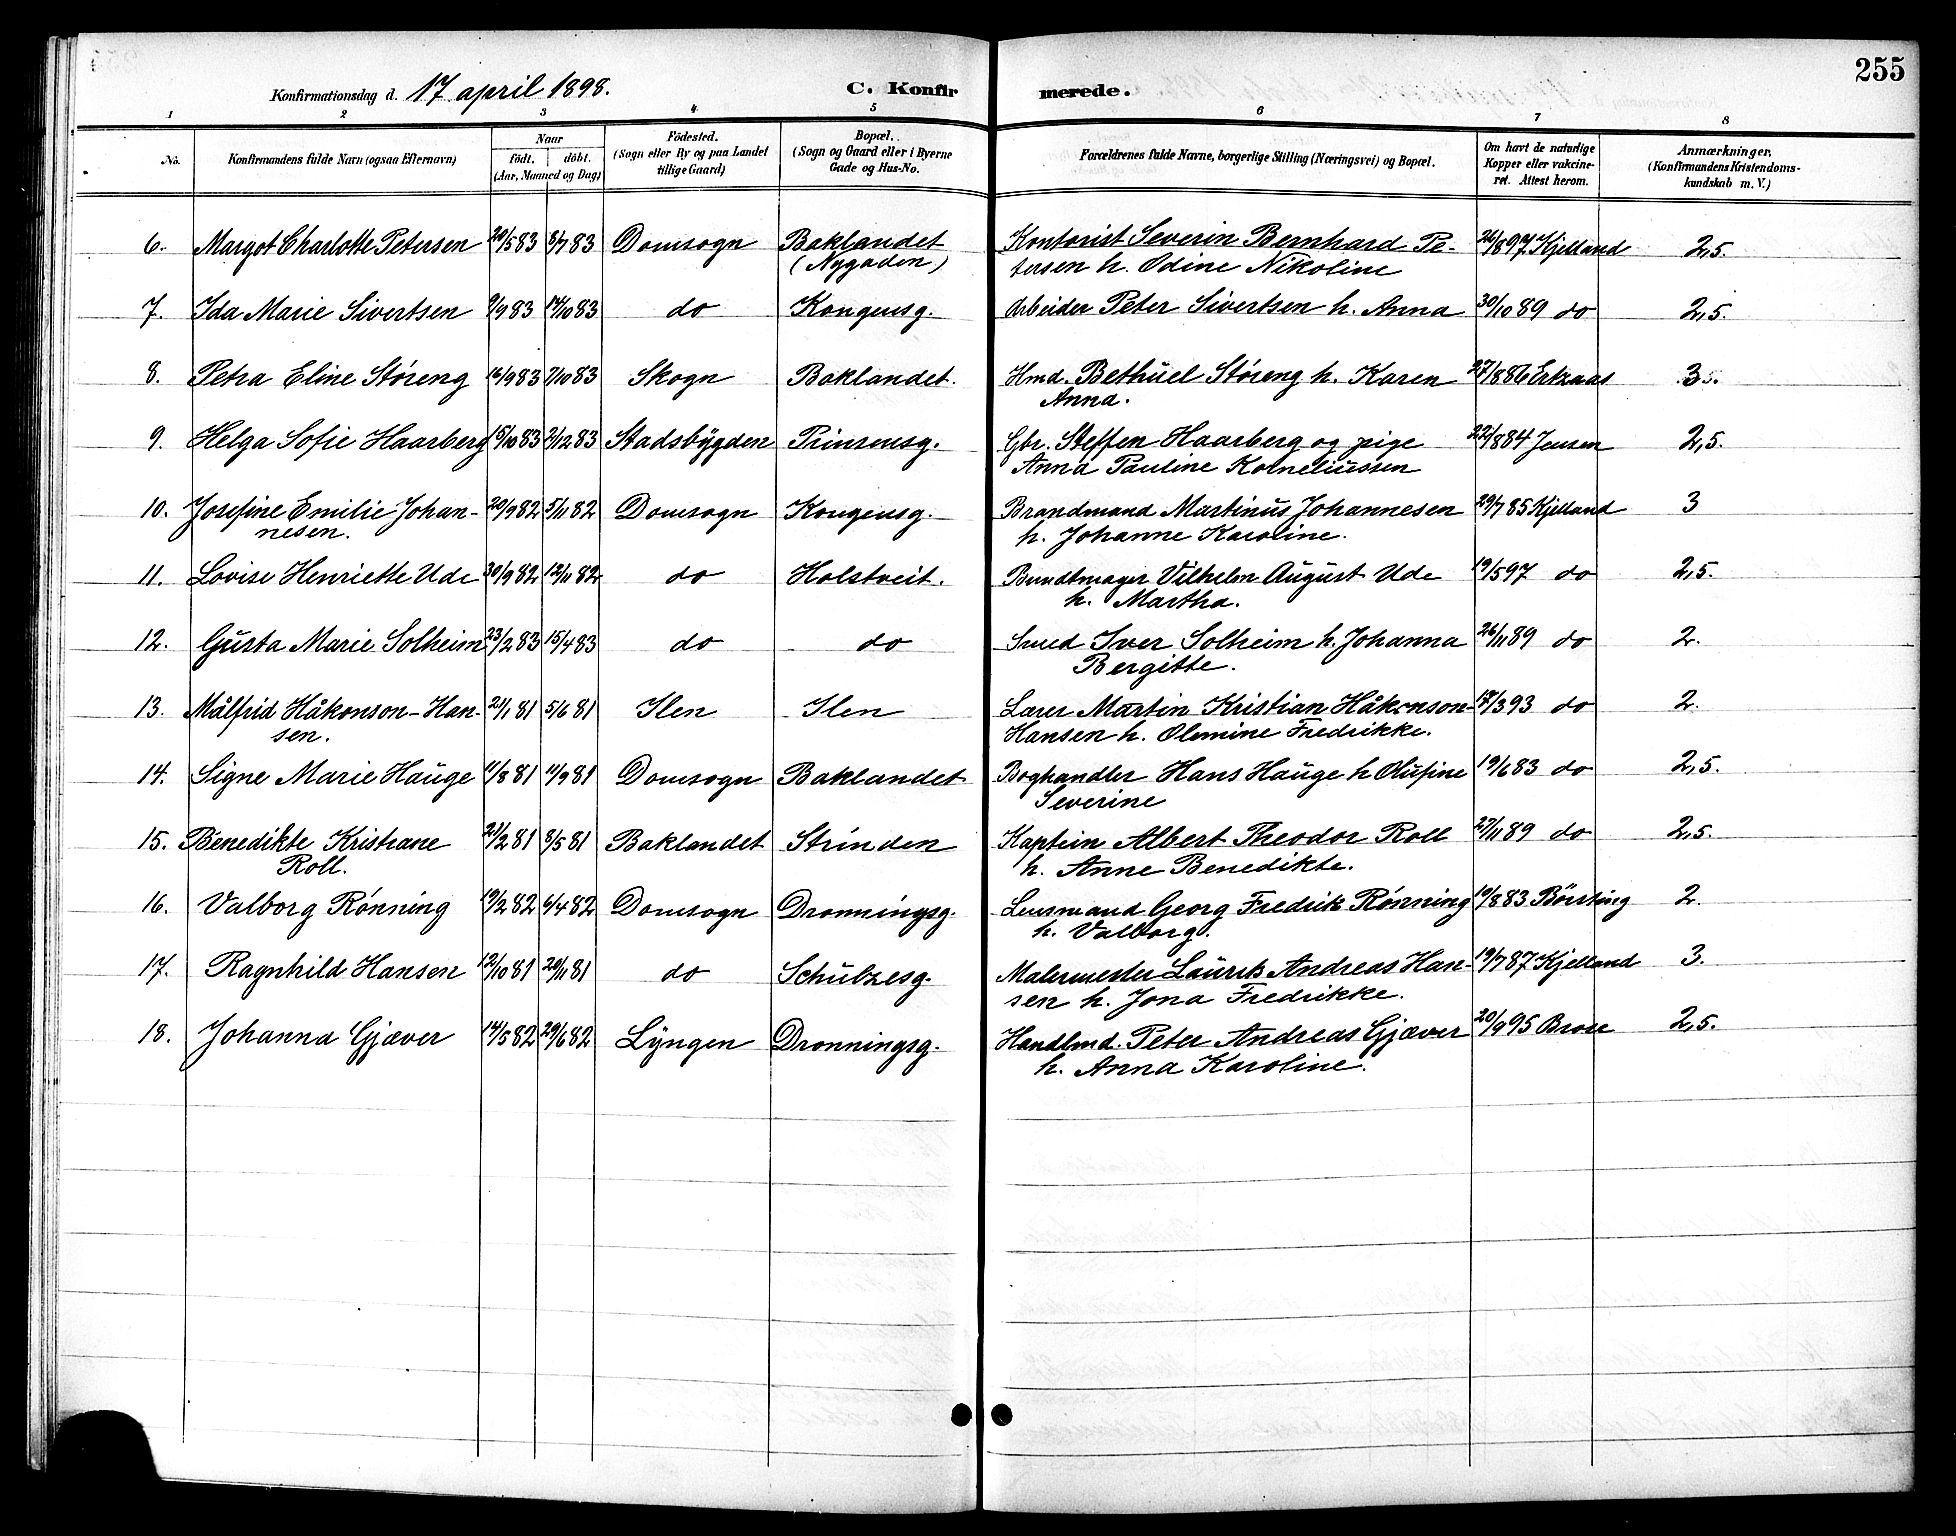 255
Konfirmationsdag d. 17 april 1898.
C. Konfirmerede.
1 2 3 4 5 6 7 8
No.
Konfirmandens fulde Navn (ogsaa Efternavn)
Naar
födt. döbt.
(Aar, Maaned og Dag)
Födested.
(Sogn eller By og paa Landet
tillige Gaard)
Bopæl.
(Sogn og Gaard eller i Byerne
Gade og Hus-No.
Forældrenes fulde Navne, borgerlige Stilling (Næringsvei) og Bopæl.
Om havt de naturlige
Kopper eller vakcine-
ret. Attest herom.
Anmærkninger,
(Konfirmandens Kristendoms-
kundskab m. V.)
6. Margot Charlotte Petersen 29/5 83 8/7 83 Domsogn Baklandet Kontorist Severin Bernhard Pe- 26/8 97 Kjelland 2,5.
(Nygaden) tersen h. Odine Nikoline
7. Ida Marie Sivertsen 9/9 83 14/10 83 do Kongensg. Arbeider Peter Sivertsen h. Anna 30/10 89 do 2,5.
8. Petra Eline Støreng 16/9 83 7/10 83 Skogn Baklandet. Hmd. Bethuel Støreng h. Karen 27/8 86 3
Anna.
9. Helga Sofie Haarberg 15/10 83 2/12 83 Stadsbygden Prinsensg. Gbr. Steffen Haarberg og pige 22/8 84 Jensen 2,5.
Anna Pauline Korneliussen
10. Josefine Emilie Johan- 20/9 82 5/11 82 Domsogn Kongensg. Brandmand Martinus Johannesen 29/7 85 Kjelland 3
nesen. h. Johanne Karoline.
11. Lovise Henriette Ude 30/9 82 12/11 82 do Holstveit. Bundtmager Vilhelm August Ude 19/5 97 do 2,5.
h. Martha.
12. Gusta Marie Solheim 23/2 83 15/4 83 do do Smed Iver Solheim h. Johanna 26/11 89 do 2.
Bergitte.
13. Målfrid Håkonson-Han- 21/1 81 5/6 81 Ilen Ilen Lærer Martin Kristian Håkonson- 18/3 93 do 2.
sen. Hansen h. Olemine Fredrikke.
14. Signe Marie Hauge 11/8 81 11/9 81 Domsogn Baklandet Boghandler Hans Hauge h Olufine 19/6 83 do 2,5.
Severine
15. Benedikte Kristiane 21/2 81 8/5 81 Baklandet Strinden Kaptein Albert Theodor Roll 27/11 89 do 2,5.
Roll. h. Anne Benedikte.
16. Valborg Rønning 19/2 82 6/4 82 Domsogn Dronningsg. Lensmand Georg Fredrik Rønning 19/8 83 Börsting 2.
h. Valborg.
17. Ragnhild Hansen 12/10 81 20/11 81 do Schultzesg. Malermester Laurits Andreas Han- 19/7 87 Kjelland 3.
sen h. Jona Fredrikke.
18. Johanna Gjæver 14/5 82 29/6 82 Lyngen Dronningsg. Handlmd. Peter Andreas Gjæver 20/9 95 2,5.
h. Anna Karoline.